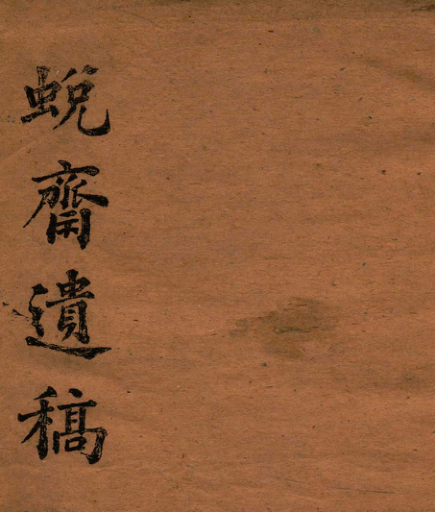 蛻齋遺稿